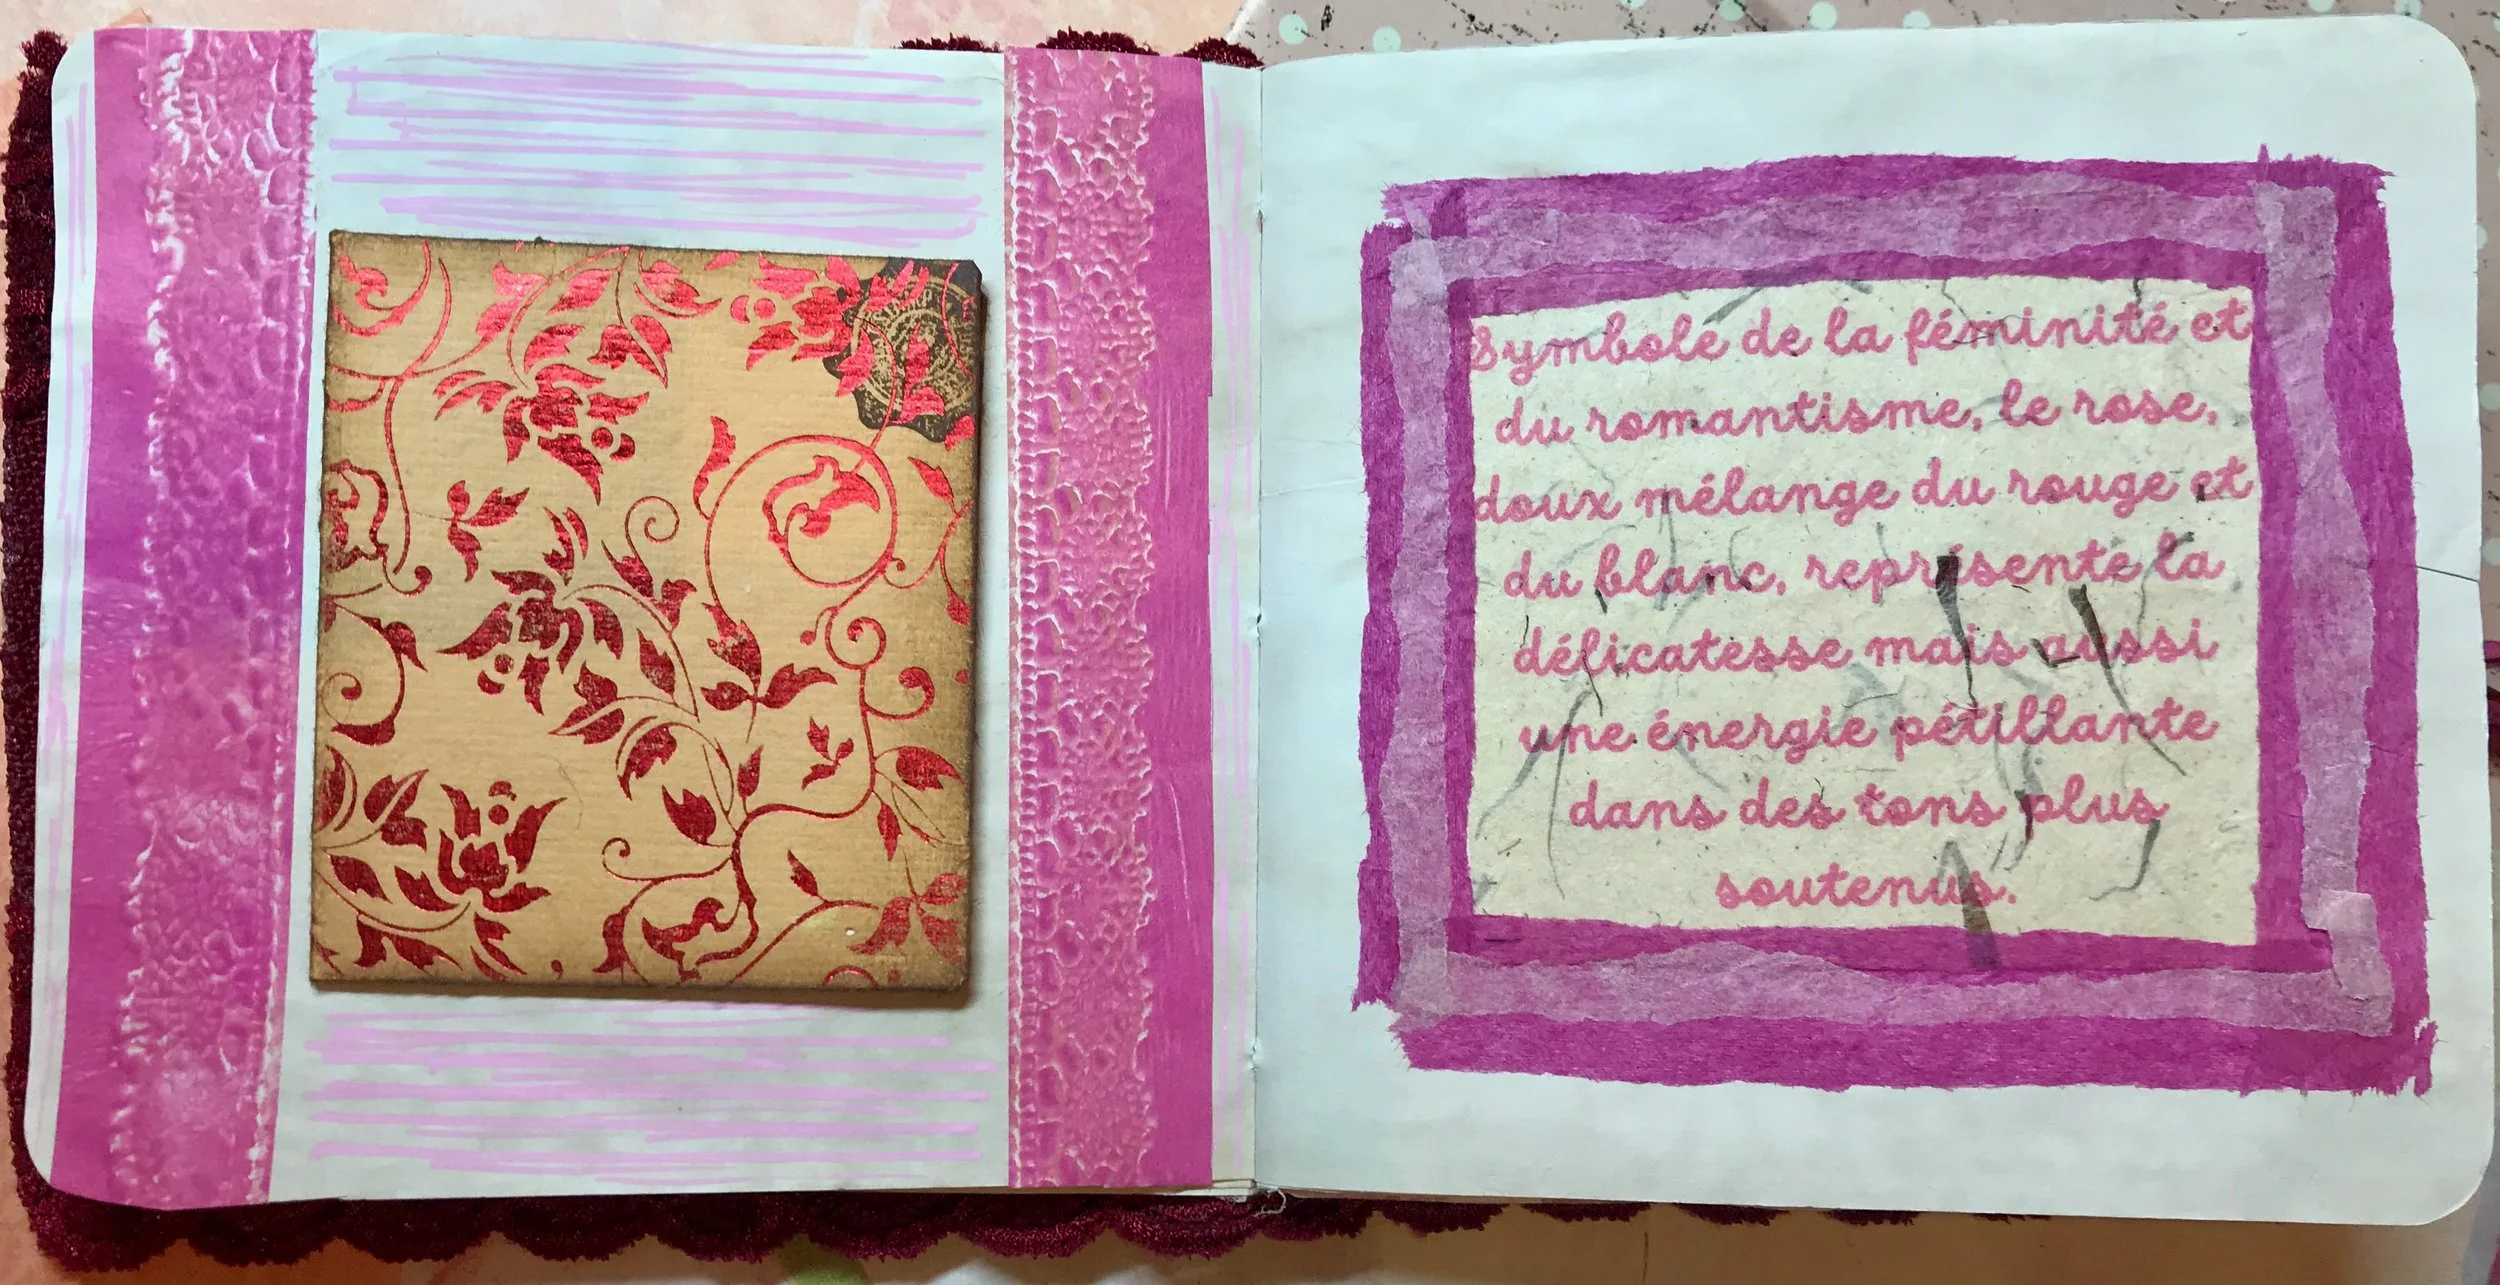 Symbole de la féminité et
du romantisme, le rose,
doux mélange du rouge et
du blanc, représente la
délicatesse mais aussi
une énergie pétillante
dans des tons plus
soutenus.